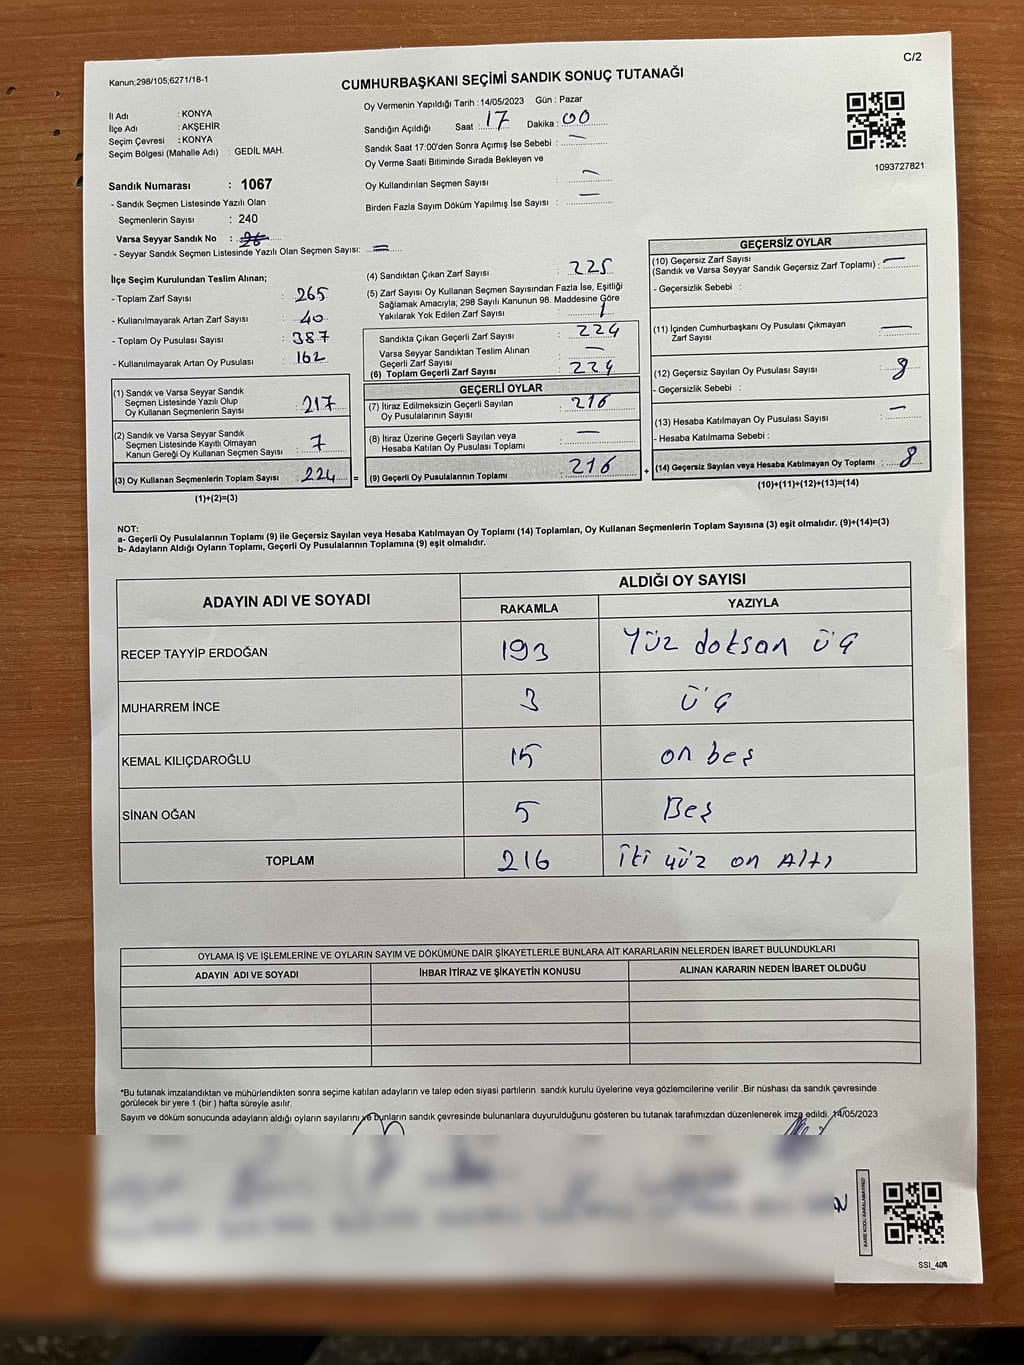 Kanun;298/105;6271/18-1
C/2
CUMHURBAŞKANI SEÇİMİ SANDIK SONUÇ TUTANAĞI
İl Adı : KONYA
İlçe Adı : AKŞEHİR
Seçim Çevresi : KONYA
Seçim Bölgesi (Mahalle Adı) : GEDİL MAH.
Sandık Numarası : 1067
- Sandık Seçmen Listesinde Yazılı Olan
Seçmenlerin Sayısı : 240
Varsa Seyyar Sandık No :
- Seyyar Sandık Seçmen Listesinde Yazılı Olan Seçmen Sayısı:
Oy Vermenin Yapıldığı Tarih : 14/05/2023 Gün : Pazar
Sandığın Açıldığı Saat : 17 Dakika : 00
Sandık Saat 17:00'den Sonra Açımış İse Sebebi : —
Oy Verme Saati Bitiminde Sırada Bekleyen ve
Oy Kullandırılan Seçmen Sayısı : —
Birden Fazla Sayım Döküm Yapılmış İse Sayısı : —
1093727821
İlçe Seçim Kurulundan Teslim Alınan;
- Toplam Zarf Sayısı : 265
- Kullanılmayarak Artan Zarf Sayısı : 40
- Toplam Oy Pusulası Sayısı : 387
- Kullanılmayarak Artan Oy Pusulası : 162
(1) Sandık ve Varsa Seyyar Sandık
Seçmen Listesinde Yazılı Olup
Oy Kullanan Seçmenlerin Sayısı : 217
(2) Sandık ve Varsa Seyyar Sandık
Seçmen Listesinde Kayıtlı Olmayan
Kanun Gereği Oy Kullanan Seçmen Sayısı : 7
(3) Oy Kullanan Seçmenlerin Toplam Sayısı : 224 =
(1)+(2)=(3)
(4) Sandıktan Çıkan Zarf Sayısı : 225
(5) Zarf Sayısı Oy Kullanan Seçmen Sayısından Fazla İse, Eşitliği
Sağlamak Amacıyla; 298 Sayılı Kanunun 98. Maddesine Göre
Yakılarak Yok Edilen Zarf Sayısı : 1
Sandıkta Çıkan Geçerli Zarf Sayısı : 224
Varsa Seyyar Sandıktan Teslim Alınan
Geçerli Zarf Sayısı : —
(6) Toplam Geçerli Zarf Sayısı : 224
GEÇERLİ OYLAR
(7) İtiraz Edilmeksizin Geçerli Sayılan
Oy Pusulalarının Sayısı : 216
(8) İtiraz Üzerine Geçerli Sayılan veya
Hesaba Katılan Oy Pusulası Toplamı : —
(9) Geçerli Oy Pusulalarının Toplamı : 216 +
GEÇERSİZ OYLAR
(10) Geçersiz Zarf Sayısı
(Sandık ve Varsa Seyyar Sandık Geçersiz Zarf Toplamı) : —
- Geçersizlik Sebebi :
(11) İçinden Cumhurbaşkanı Oy Pusulası Çıkmayan
Zarf Sayısı : —
(12) Geçersiz Sayılan Oy Pusulası Sayısı : 8
- Geçersizlik Sebebi :
(13) Hesaba Katılmayan Oy Pusulası Sayısı : —
- Hesaba Katılmama Sebebi :
(14) Geçersiz Sayılan veya Hesaba Katılmayan Oy Toplamı : 8
(10)+(11)+(12)+(13)=(14)
NOT:
a- Geçerli Oy Pusulalarının Toplamı (9) ile Geçersiz Sayılan veya Hesaba Katılmayan Oy Toplamı (14) Toplamları, Oy Kullanan Seçmenlerin Toplam Sayısına (3) eşit olmalıdır. (9)+(14)=(3)
b- Adayların Aldığı Oyların Toplamı, Geçerli Oy Pusulalarının Toplamına (9) eşit olmalıdır.
ADAYIN ADI VE SOYADI
ALDIĞI OY SAYISI
RAKAMLA YAZIYLA
RECEP TAYYİP ERDOĞAN 193 Yüz doksan üç
MUHARREM İNCE 3 üç
KEMAL KILIÇDAROĞLU 15 on beş
SİNAN OĞAN 5 Beş
TOPLAM 216 iki yüz on Altı
OYLAMA İŞ VE İŞLEMLERİNE VE OYLARIN SAYIM VE DÖKÜMÜNE DAİR ŞİKAYETLERLE BUNLARA AİT KARARLARIN NELERDEN İBARET BULUNDUKLARI
ADAYIN ADI VE SOYADI İHBAR İTİRAZ VE ŞİKAYETİN KONUSU ALINAN KARARIN NEDEN İBARET OLDUĞU
*Bu tutanak imzalandıktan ve mühürlendikten sonra seçime katılan adayların ve talep eden siyasi partilerin sandık kurulu üyelerine veya gözlemcilerine verilir .Bir nüshası da sandık çevresinde
görülecek bir yere 1 (bir ) hafta süreyle asılır.
Sayım ve döküm sonucunda adayların aldığı oyların sayılarını ve bunların sandık çevresinde bulunanlara duyurulduğunu gösteren bu tutanak tarafımızdan düzenlenerek imza edildi. 14/05/2023
KARE KODU KARALAMAYINIZ!